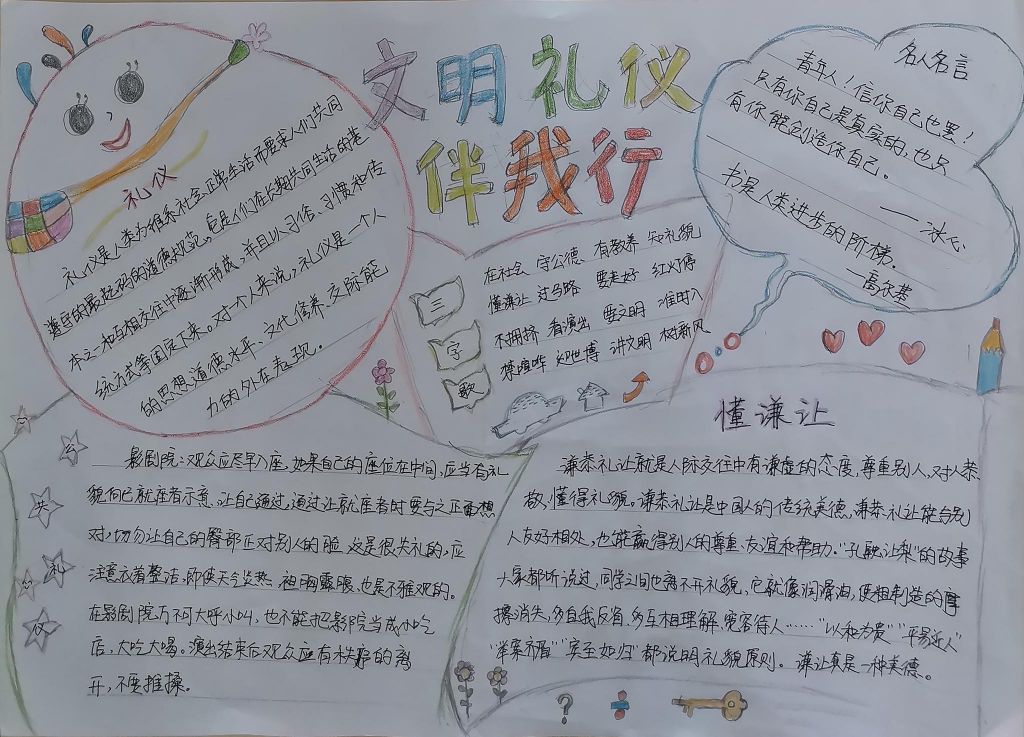 文明礼仪
伴我行
礼仪
礼仪是人类为维系社会正常生活而要求人们共同
遵守的最起码的道德规范,它是人们在长期共同生活的基
本之一和互相交往中逐渐形成,并且以习俗、习惯和传
统方式等固定下来。对一个人来说,礼仪是一个人
的思想道德水平、文化修养、交际能
力的外在表现。
三
字
歌
在社会 守公德 有教养 知礼貌
懂谦让 过马路 要走好 红灯停
不拥挤 看演出 要文明 准时入
禁喧哗 迎世博 讲文明 树新风
名人名言
青年人!信你自己也罢!
只有你自己是真实的,也只
有你能创造你自己。
——冰心
书是人类进步的阶梯。
—高尔基
影剧院:观众应尽早入座,如果自己的座位在中间,应当有礼
貌向已就座者示意,让自己通过,通过让就座者时要与之正面相
对,切勿让自己的臀部正对别人的脸,这是很失礼的,应
注意衣着整洁,即使天气炎热,袒胸露腹,也是不雅观的。
在影剧院万不可大呼小叫,也不能把影院当成小吃
店,大吃大喝。演出结束后观众应有秩序的离
开,不要推搡。
懂谦让
谦恭礼让就是人际交往中有谦虚的态度,尊重别人,对人恭
敬,懂得礼貌。谦恭礼让是中国人的传统美德,谦恭礼让能台别
人友好相处,也能赢得别人的尊重、友谊和帮助。"孔融让梨"的故事
大家都听说过,同学之间也离不开礼貌,它就像润滑油,使粗制造的摩
擦消失,多自我反省,多互相理解、宽容待人……"以和为贵""平易近人"
"举案齐眉""宾至如归"都说明礼貌原则。谦让真是一种美德。